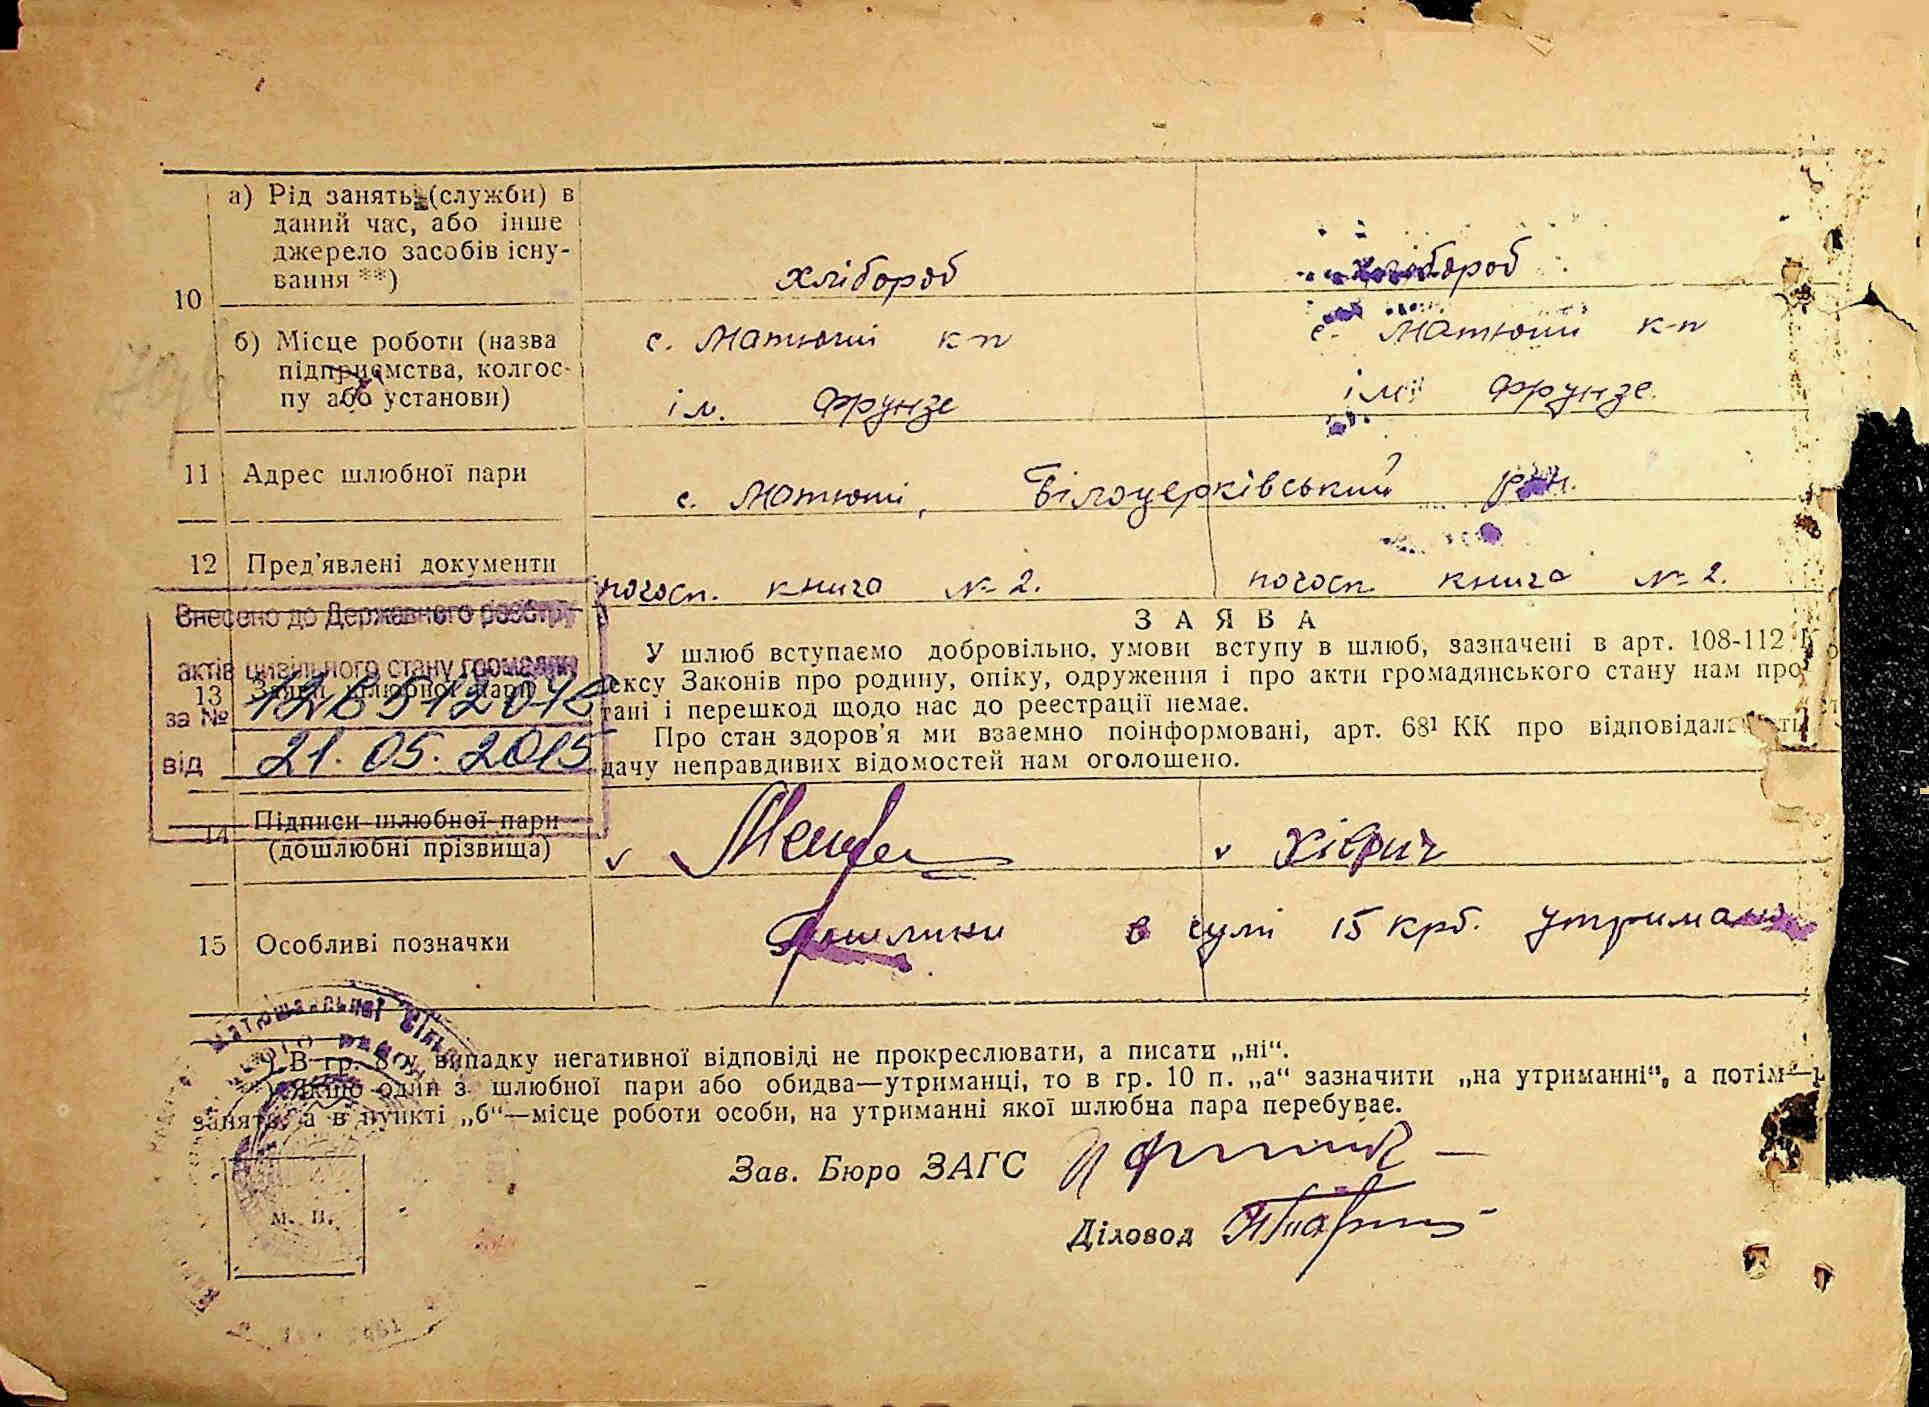 10
а) Рід занять (служби) в
даний час, або інше
джерело засобів існу-
вання **)
хлібороб
хлібороб
б) Місце роботи (назва
підприємства, колгос-
пу або установи)
с. Матюши к-п
ім. Фрунзе
с. Матюши к-п
ім. Фрунзе
11 Адрес шлюбної пари
с. Матюші, Білоцерківський р-н.
12 Пред'явлені документи
погосп. книга № 2.
погосп. книга № 2.
Внесено до Державного реєстру
актів цивільного стану громадян
за №
від 21. 05. 2015
13 Заява шлюбної пари
З А Я В А
У шлюб вступаємо добровільно, умови вступу в шлюб, зазначені в арт. 108-112
ексу Законів про родину, опіку, одруження і про акти громадянського стану нам про
тані і перешкод щодо нас до реєстрації немає.
Про стан здоров'я ми взаємно поінформовані, арт. 68¹ КК про
дачу неправдивих відомостей нам оголошено.
14 Підписи шлюбної пари
(дошлюбні прізвища)
v
v Ківрич
15 Особливі позначки
в сумі 15 крб. утримано
*) В гр. 8 у випадку негативної відповіді не прокреслювати, а писати „ні“.
**) Якщо один з шлюбної пари або обидва—утриманці, то в гр. 10 п. „а“ зазначити „на утриманні“, а потім—
занять, а в пункті „б“—місце роботи особи, на утриманні якої шлюбна пара перебуває.
Зав. Бюро ЗАГС
Діловод
м. п.